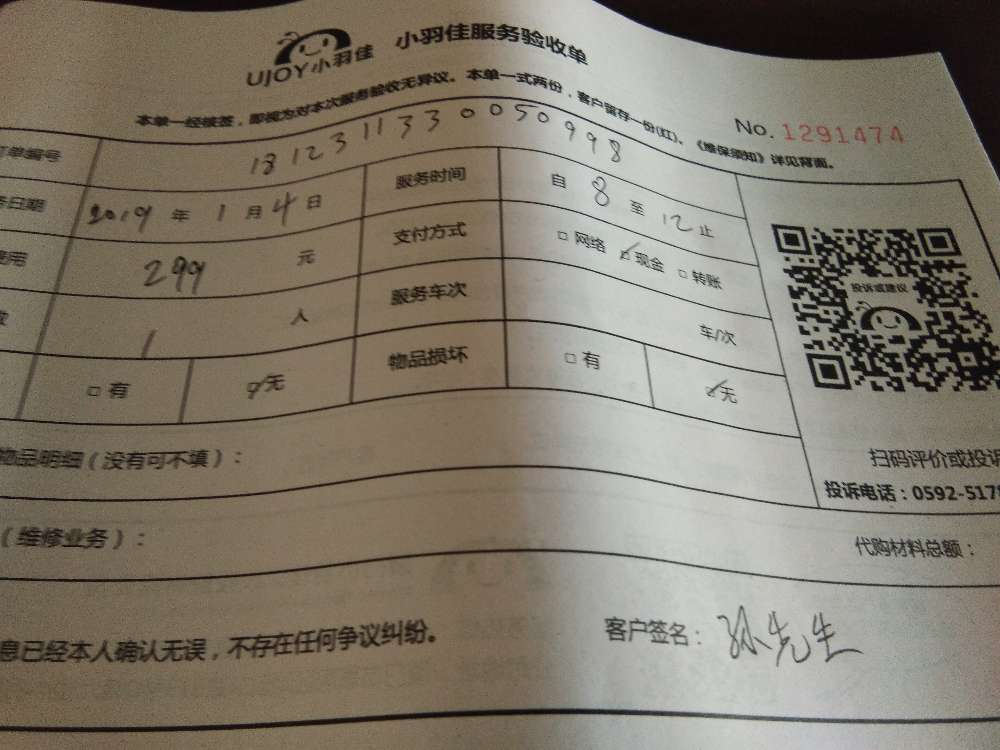 UJOY小羽佳 小羽佳服务验收单
本单一经核签，即视为对本次服务验收无异议。本单一式两份，客户留存一份(红)。《维保须知》详见背面。
No. 1291474
订单编号 1812311330050998
务日期 2019 年 1 月 4 日 服务时间 自 8 至 12 止
费用 299 元 支付方式 □ 网络 ☑ 现金 □ 转账
数 1 人 服务车次 车/次
□ 有 ☑ 无 物品损坏 □ 有 ☑ 无
投诉或建议
扫码评价或投诉
投诉电话：0592-5178
物品明细（没有可不填）：
（维修业务）： 代购材料总额：
息已经本人确认无误，不存在任何争议纠纷。 客户签名：孙先生